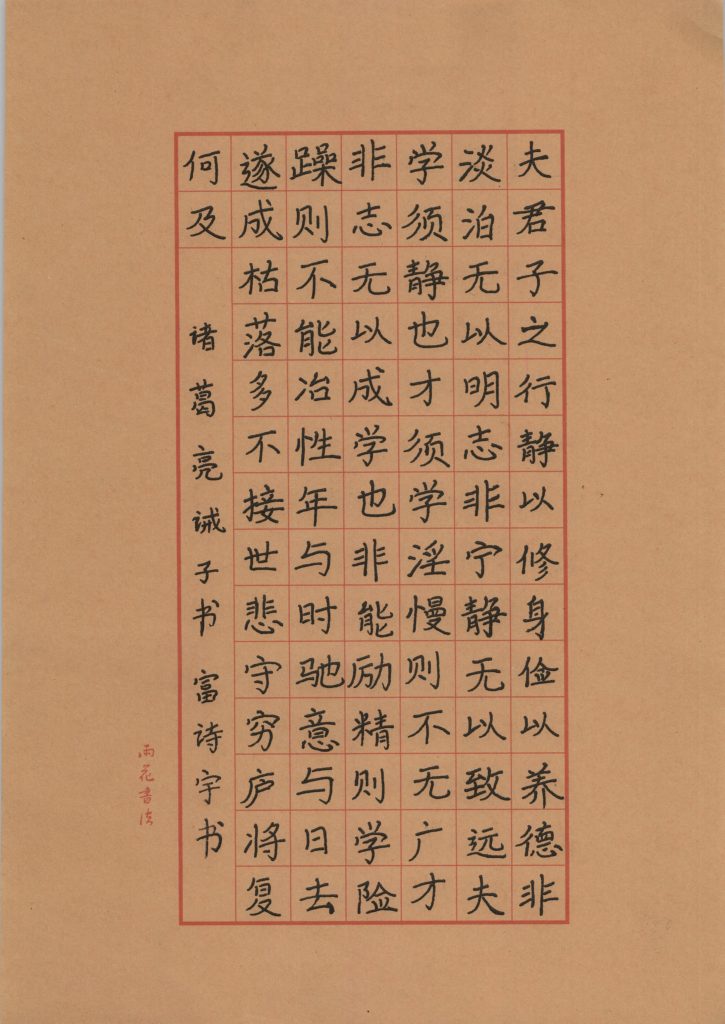 夫君子之行静以修身俭以养德非
淡泊无以明志非宁静无以致远夫
学须静也才须学淫慢则不无广才
非志无以成学也非能励精则学险
躁则不能冶性年与时驰意与日去
遂成枯落多不接世悲守穷庐将复
何及 诸葛亮诫子书 富诗宇书
雨花書法